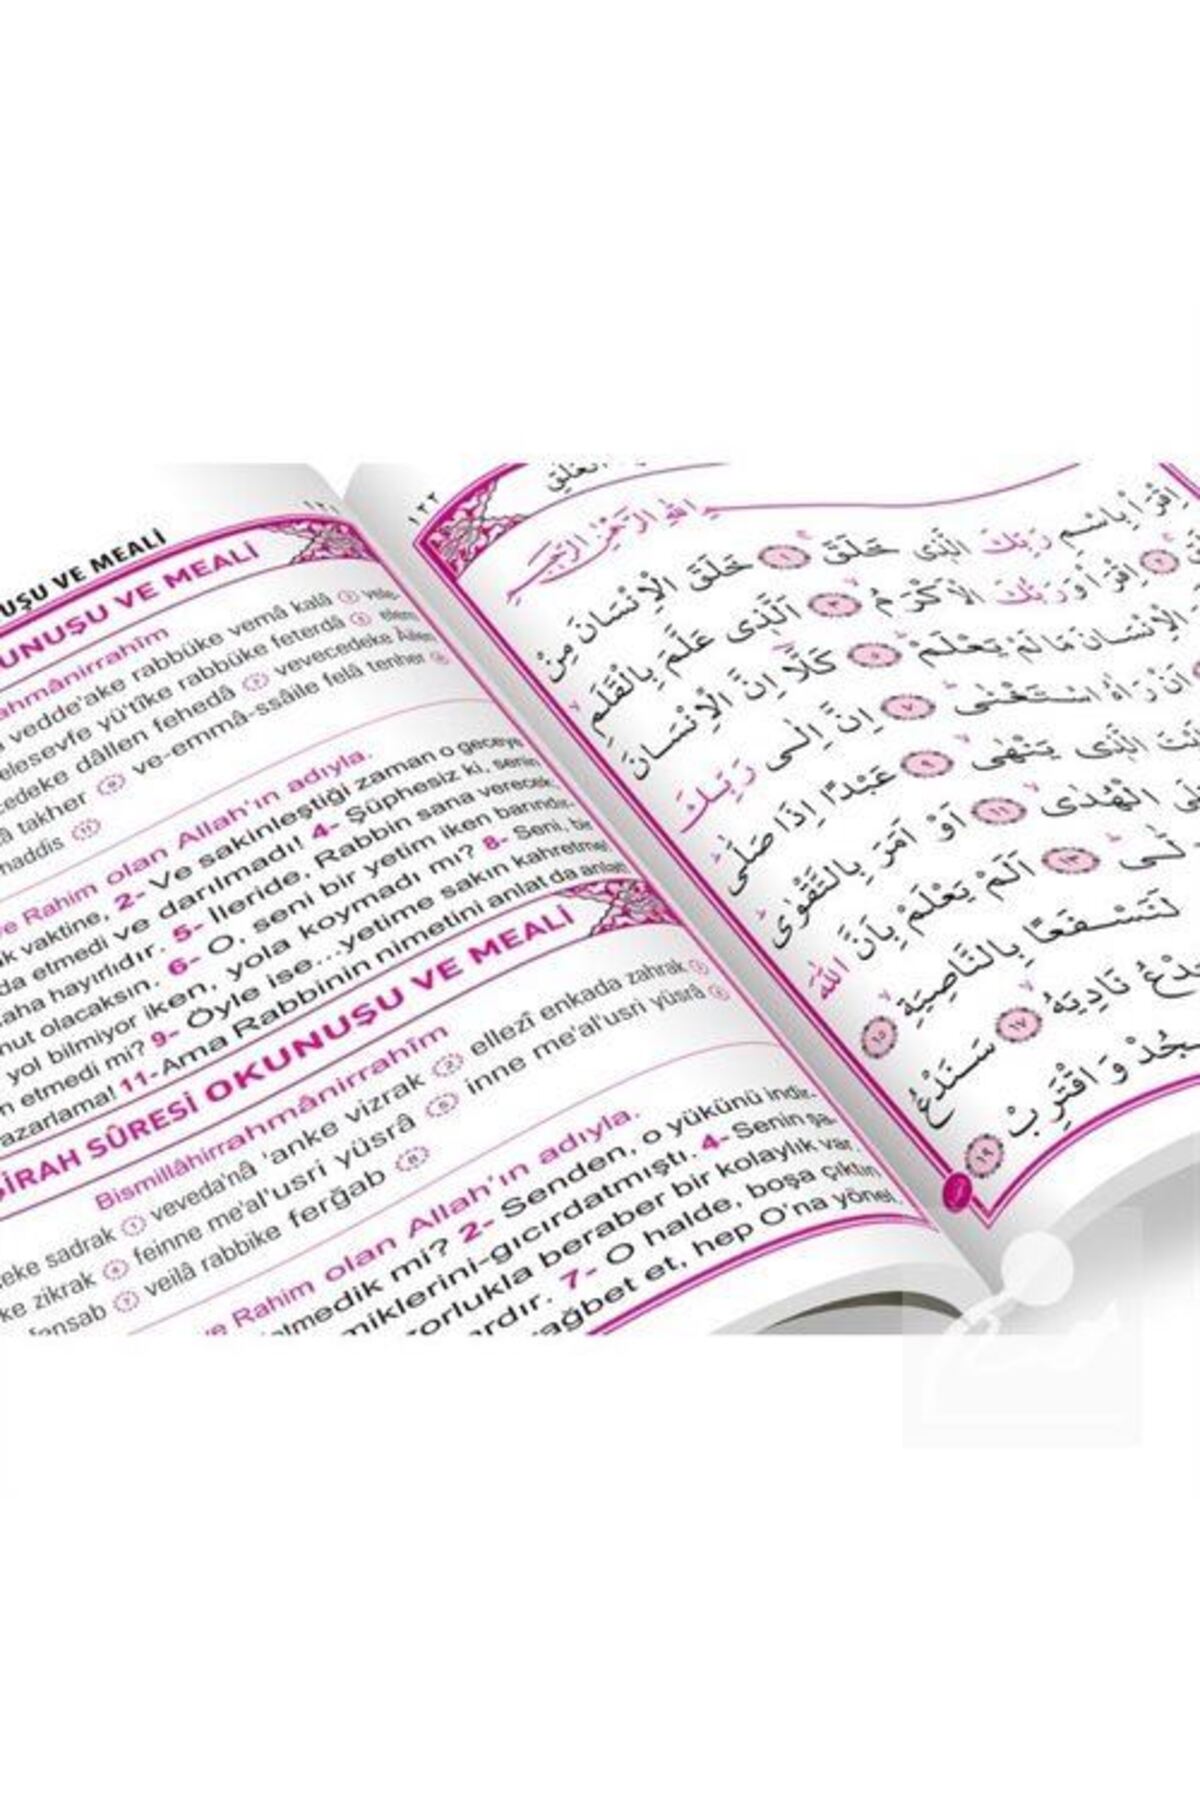 ١٢١
UŞU VE MEALİ
UNUŞU VE MEALİ
ahmânirrahîm
vedde'ake rabbüke vemâ kalâ ٣ vele-
elesevfe yü'tîke rabbüke feterdâ ٥ elem
cedeke dâllen fehedâ ٧ vevecedeke Âilen
takher ٩ ve-emmâ-ssâile felâ tenher
haddis ١١
ve Rahim olan Allah'ın adıyla.
k vaktine, 2- Ve sakinleştiği zaman o geceye
da etmedi ve darılmadı! 4- Şüphesiz ki, senin
aha hayırlıdır. 5- İleride, Rabbin sana verecek,
nut olacaksın. 6- O, seni bir yetim iken barındır-
yol bilmiyor iken, yola koymadı mı? 8- Seni, bir
n etmedi mi? 9- Öyle ise...yetime sakın kahretme!
azarlama! 11- Ama Rabbinin nimetini anlat da anlat
ŞİRAH SÛRESİ OKUNUŞU VE MEALİ
Bismillâhirrahmânirrahîm
eke sadrak ١ veveda'nâ 'anke vizrak ٢ ellezî enkada zahrak ٣
ke zikrak ٤ feinne me'al'usri yüsrâ ٥ inne me'al'usri yüsrâ ٦
fensab ٧ veilâ rabbike ferğab ٨
ve Rahim olan Allah'ın adıyla.
etmedik mi? 2- Senden, o yükünü indir-
miklerini-gıcırdatmıştı. 4- Senin şa-
zorlukla beraber bir kolaylık var.
ardır. 7- O halde, boşa çıktın
ağbet et, hep O'na yönel.
١٢٢
العلق
الله الرحمن الرحيم
اِقْرَأْ بِاسْمِ رَبِّكَ الَّذِى خَلَقَ ١ خَلَقَ الْاِنْسَانَ مِنْ
٢ اِقْرَأْ وَرَبُّكَ الْاَكْرَمُ ٣ اَلَّذِى عَلَّمَ بِالْقَلَمِ
الْاِنْسَانَ مَا لَمْ يَعْلَمْ ٥ كَلَّا اِنَّ الْاِنْسَانَ
اَنْ رَاٰهُ اسْتَغْنٰى ٧ اِنَّ اِلٰى رَبِّكَ
الَّذِى يَنْهٰى ٩ عَبْدًا اِذَا صَلّٰى
الْهُدٰى ١١ اَوْ اَمَرَ بِالتَّقْوٰى
١٣ اَلَمْ يَعْلَمْ بِاَنَّ اللّٰهَ
لَنَسْفَعًا بِالنَّاصِيَةِ ١٥
نَادِيَهُ ١٧ سَنَدْعُ
وَاقْتَرِبْ ١٩